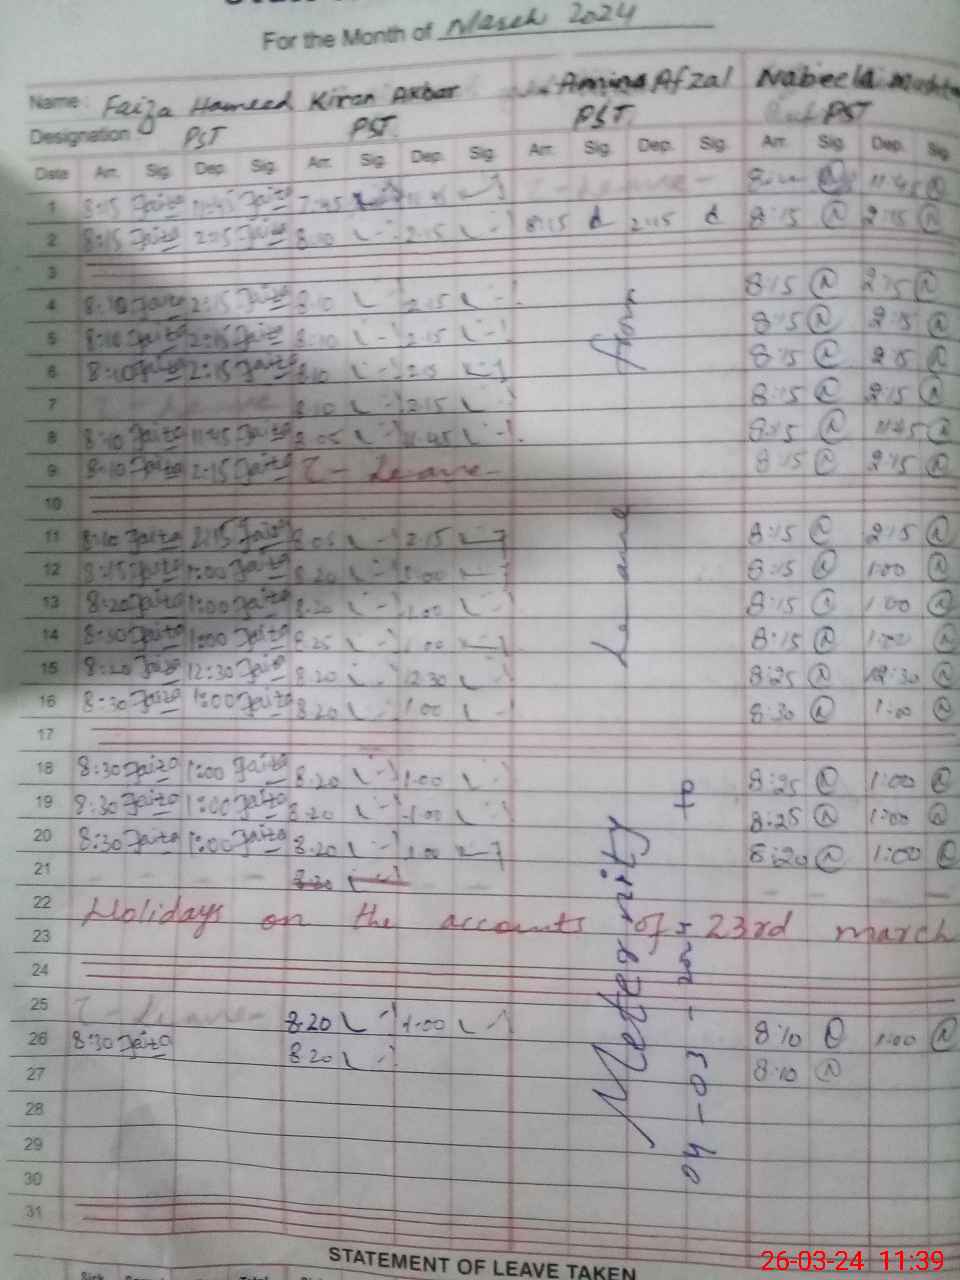 For the Month of March 2024
Name: Faiza Hameed Kiran Akbar Amina Afzal Nabeela
Designation PST PST PST PST
Date Arr. Sig. Dep. Sig. Arr. Sig. Dep. Sig. Arr. Sig. Dep. Sig. Arr. Sig. Dep. Sig
1 8:15 Faiza 11:45 Faiza 7.45 11.45 11:45
2 8:15 Faiza 2:15 Faiza 8.10 2.15 8:15 d 2:15 d 8:15 2:15
3
4 8:10 Faiza 2:15 Faiza 8.10 2.15 8:15 2:15
5 8:10 Faiza 2:15 Faiza 8.10 2.15 8:15 2:15
6 8:10 Faiza 2:15 Faiza 8.10 2.15 8:15 2:15
7 8.10 2.15 8:15 2:15
8 8:10 Faiza 11:45 Faiza 8.05 11.45 8:15 11:45
9 8:10 Faiza 2:15 Faiza Leave 8:15 2:15
10
11 8:10 Faiza 2:15 Faiza 8.05 2.15 8:15 2:15
12 8:15 Faiza 1:00 Faiza 8.20 1.00 8:15 1:00
13 8:20 Faiza 1:00 Faiza 8.20 1.00 8:15 1:00
14 8:30 Faiza 1:00 Faiza 8.25 1.00 8:15 1:00
15 8:20 Faiza 12:30 Faiza 8.20 12.30 8:25 12:30
16 8:30 Faiza 1:00 Faiza 8.20 1.00 8:30 1:00
17
18 8:30 Faiza 1:00 Faiza 8.20 1.00 8:25 1:00
19 8:30 Faiza 1:00 Faiza 8.20 1.00 8:25 1:00
20 8:30 Faiza 1:00 Faiza 8.20 1.00 8:20 1:00
21 8.20
22
Holidays on the accounts of 23rd march
23
24
25 Leave 8.20 1.00 8:10 1:00
26 8:30 Faiza 8.20 8:10
27
28
29
30
31
Maternity Leave from
04-03-
to
STATEMENT OF LEAVE TAKEN
26-03-24 11:39